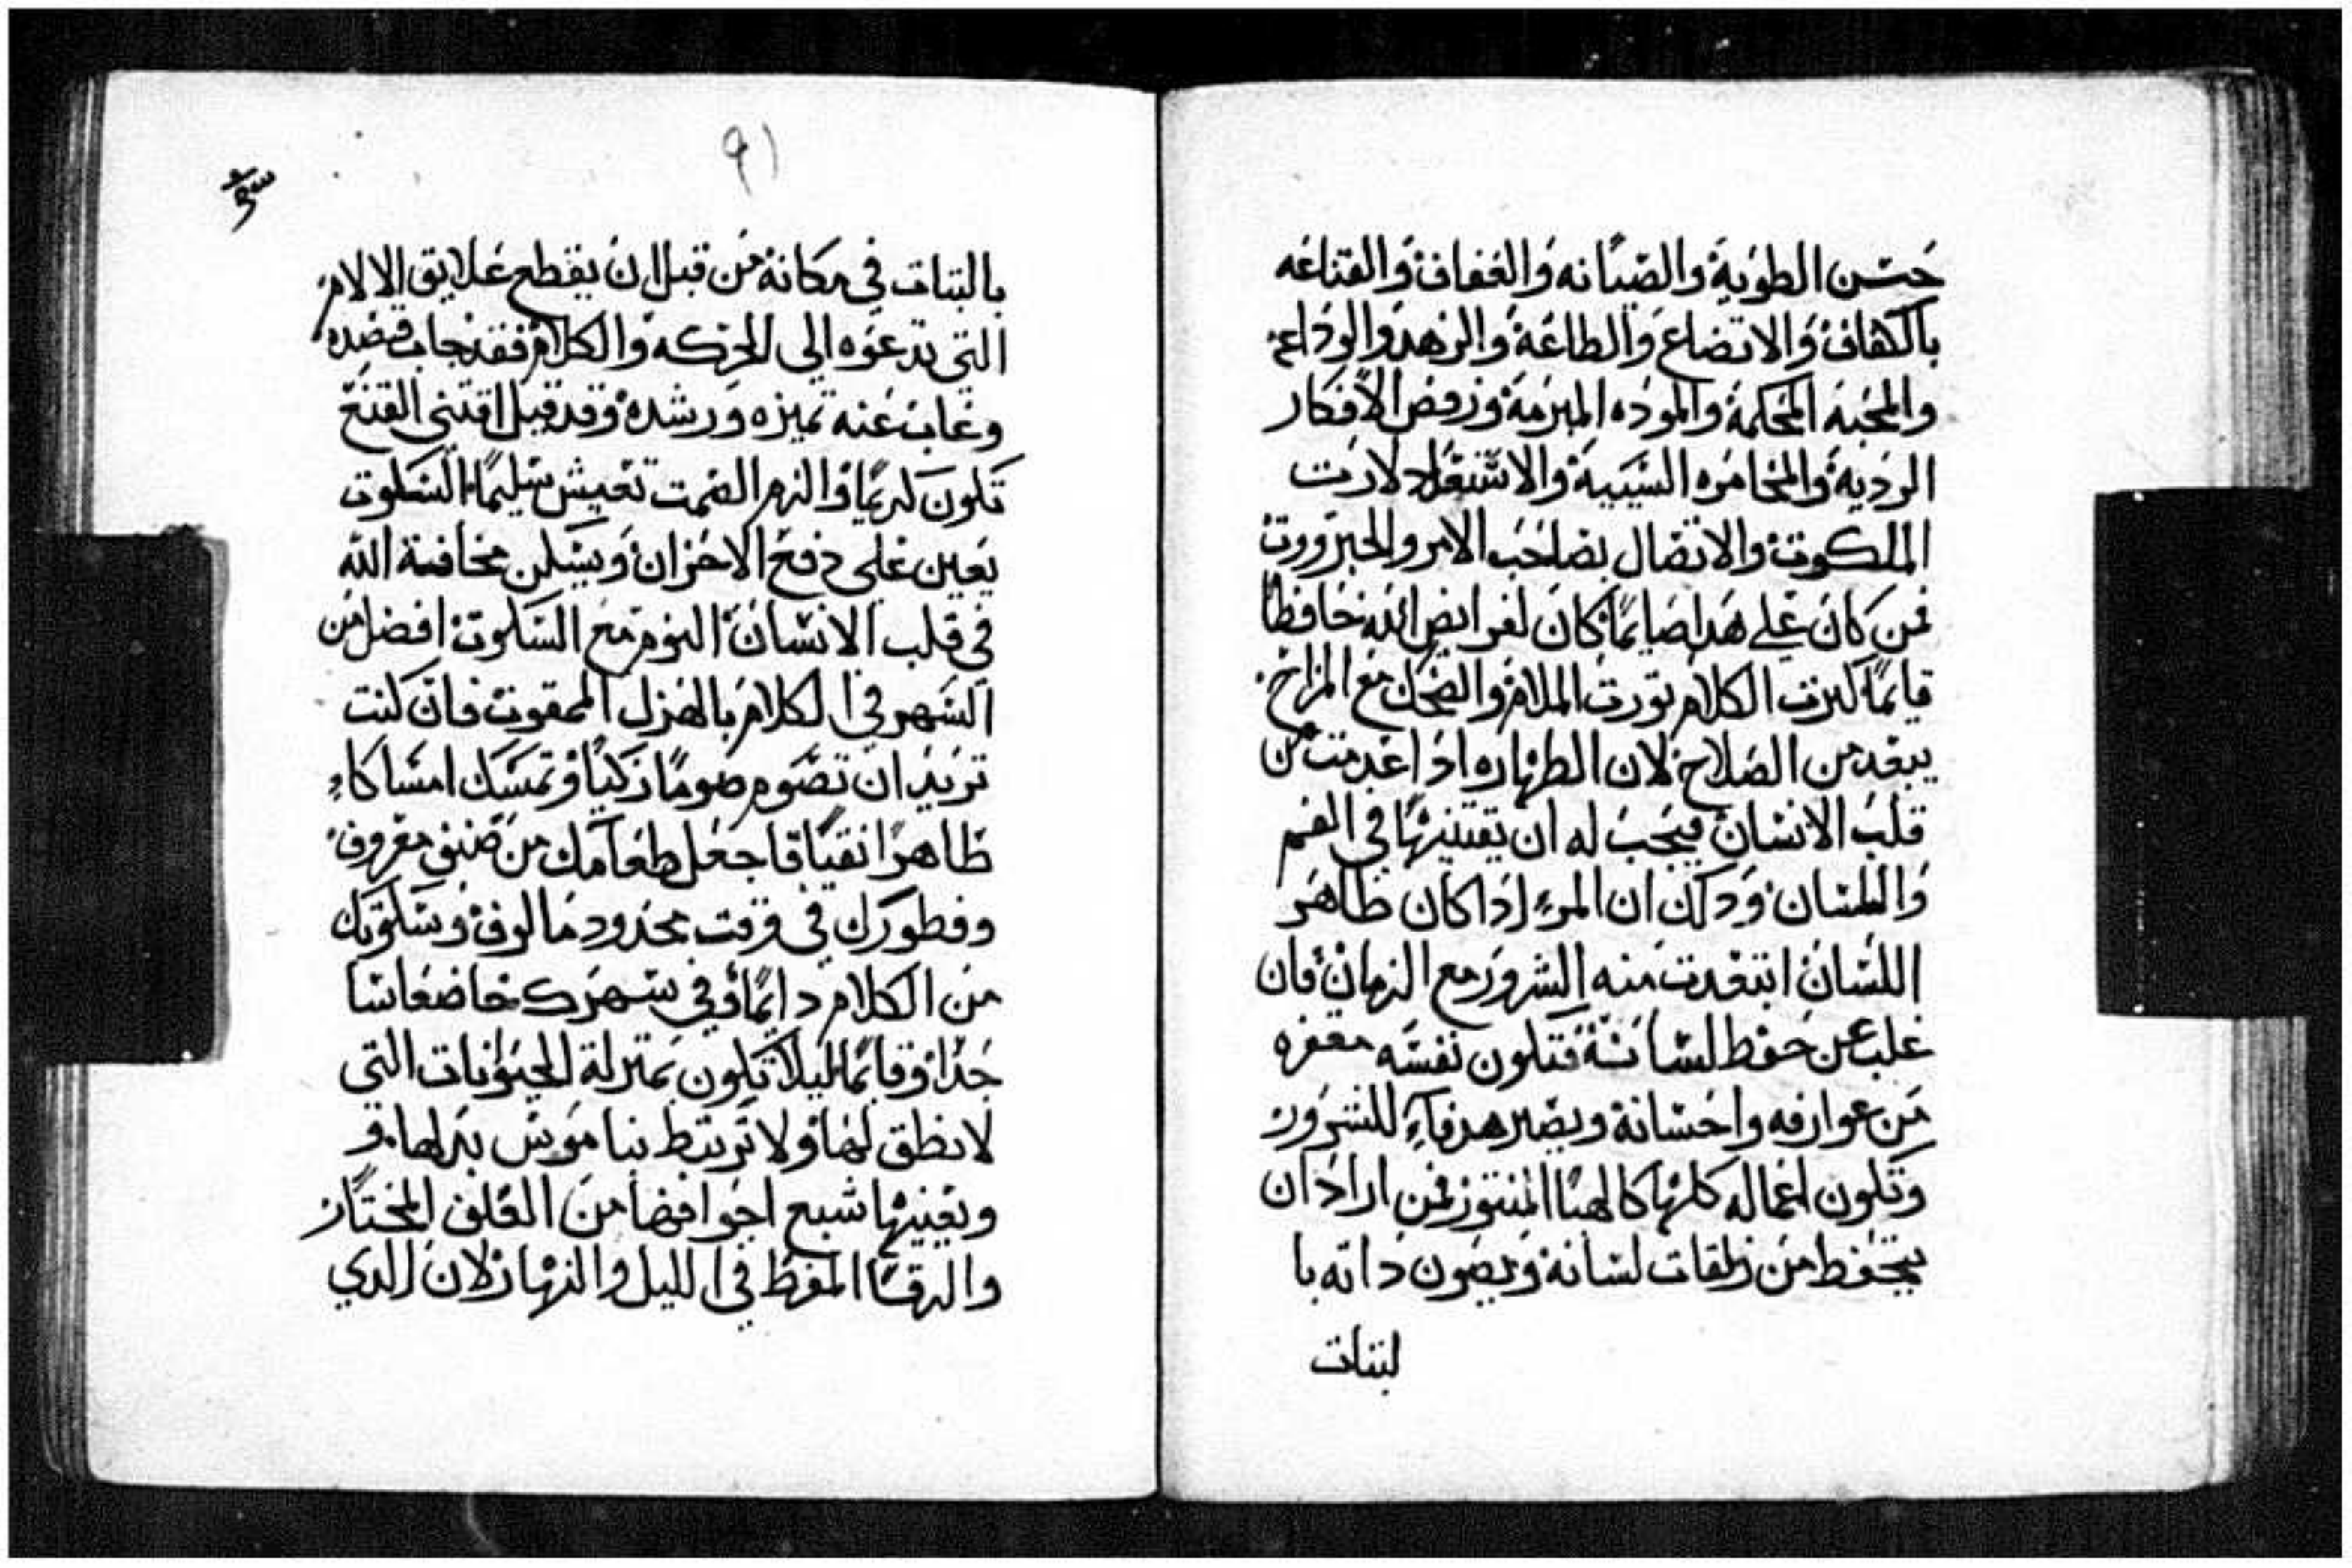 حسن الطوية والصيانه والعفاف والقناعه
بالكفاف والاتضاع والطاعة والزهد والوداعة
والمحبه المحكمة والموده المبرمة ورفض الافكار
الردية والمخامره السيية والاشتغال لادت
الملكوت والاتصال بصاحب الامر والجبروت
فمن كان على هدا صايما كان لفرايض الله حافظا
قايما كترت الكلام تورت الملام والضحك مع المزاح
يبعد من الصلاح لان الطهاره ادا عدمت من
قلب الانسان فيجب له ان يقتنيها في الفم
واللسان ودلك ان المرء ادا كان طاهر
اللسان ابتعدت منه الشرور مع الزمان فان
غلب عن حفظ لسانة فتكون نفسه مقفره
من عوارفه واحسانة ويصير هدفاء للشرور
وتكون اعماله كلها كالهبا المنتور فمن اراد ان
يتحفظ من زلقات لسانة ويصون داته با
لتبات
٩١
بالتبات في مكانة من قبل ان يقطع علايق الالام
التي تدعوه الى الحركه والكلام فقد خاب قصده
وغاب عنه تميزه ورشده وقد قيل اقتني القنع
تكون كريما والزم الصمت تعيش سليما السكوت
يعين على دفع الاحزان ويسكن مخافة الله
في قلب الانسان النوم مع السكوت افضل من
السهر في الكلام بالهزل الممقوت فان كنت
تريد ان تصوم صوما زكيا وتمسك امساكاء
طاهرا نقيا فاجعل طعامك من صنف معروف
وفطورك في وقت محدود مالوف وسكوتك
من الكلام دايما وفي سهرك خاضعا سا
جدا وقايما ليلا تكون بمنزلة الحيوانات التي
لا نطق لها ولا ترتبط بناموس بدلها و
ويعينها شبع اجوافها من العلف المختار
والرقاا المفرط في الليل والنهار لان الدي